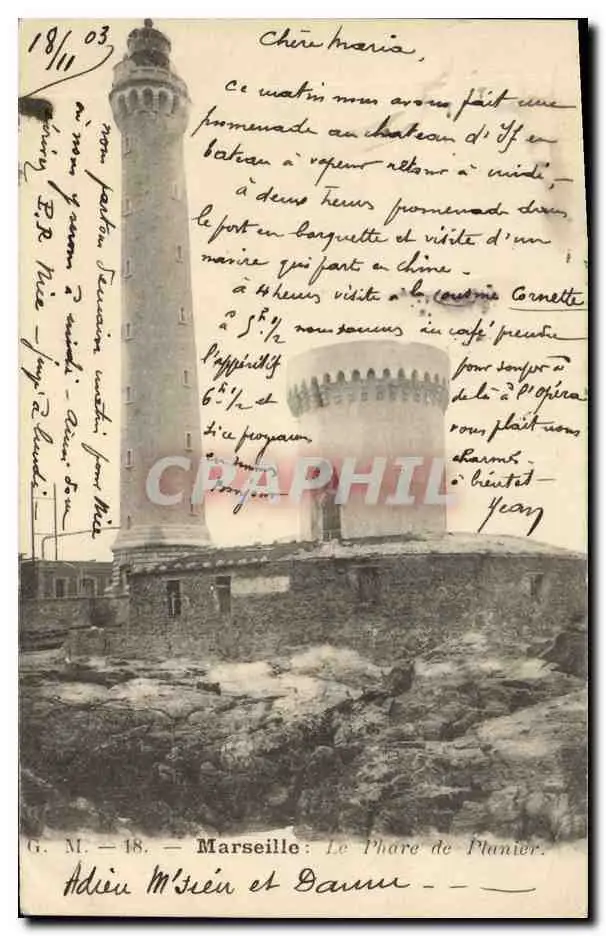 18/11 03
Chère Maria,
Ce matin nous avons fait une
promenade au chateau d'If en
bateau à vapeur retour à midi, -
à deux heures promenade dans
le port en barquette et visite d'un
navire qui part en chine -
à 4 heures visite à la cousine Cornette
à 5h 1/2 nous sommes au café prendre
l'appéritif pour souper à
6h 1/2 et de là à l'opéra
si ce programme vous plait vous
charmé -
bonjour à bientôt -
Jean
nous partons demain matin pour Nice
où nous y serons à midi - ainsi donc
écrivez P.R Nice - jusqu'à lundi -
CPAPHIL
G. M. - 18. - Marseille: Le Phare de Planier.
Adieu et